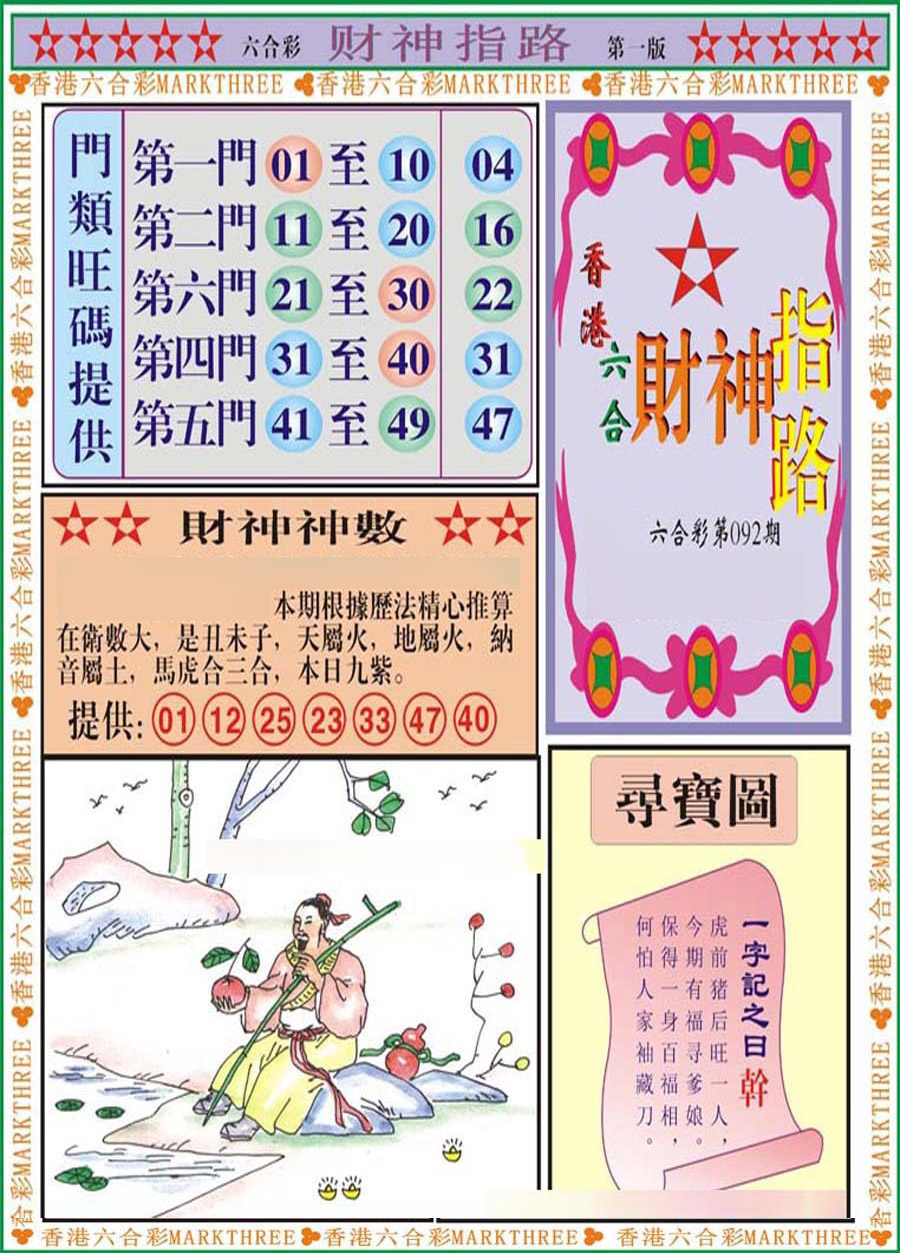 六合彩 财神指路 第一版
香港六合彩MARKTHREE 香港六合彩MARKTHREE 香港六合彩MARKTHREE
門類旺碼提供
第一門 01 至 10 04
第二門 11 至 20 16
第六門 21 至 30 22
第四門 31 至 40 31
第五門 41 至 49 47
香港
六合
財神
指路
六合彩第092期
財神神數
本期根據歷法精心推算
在術數大，是丑未子，天屬火，地屬火，納
音屬土，馬虎合三合，本日九紫。
提供: 01 12 25 23 33 47 40
尋寶圖
一字記之曰 幹
虎前猪后旺一人，
今期有福寻爹娘。
保得一身百福相，
何怕人家袖藏刀。
香港六合彩MARKTHREE
香港六合彩MARKTHREE
香港六合彩MARKTHREE
香港六合彩MARKTHREE
香港六合彩MARKTHREE
香港六合彩MARKTHREE
香港六合彩MARKTHREE
香港六合彩MARKTHREE
香港六合彩MARKTHREE 香港六合彩MARKTHREE 香港六合彩MARKTHREE